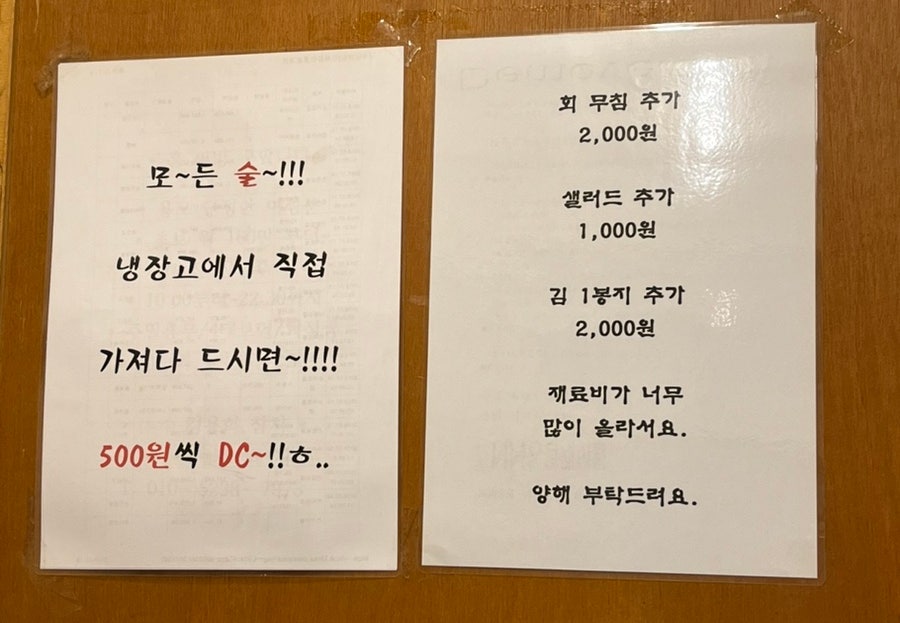 모~든 술~!!!
냉장고에서 직접
가져다 드시면~!!!!
500원씩 DC~!!ㅎ..
회 무침 추가
2,000원
샐러드 추가
1,000원
김 1봉지 추가
2,000원
재료비가 너무
많이 올라서요.
양해 부탁드려요.